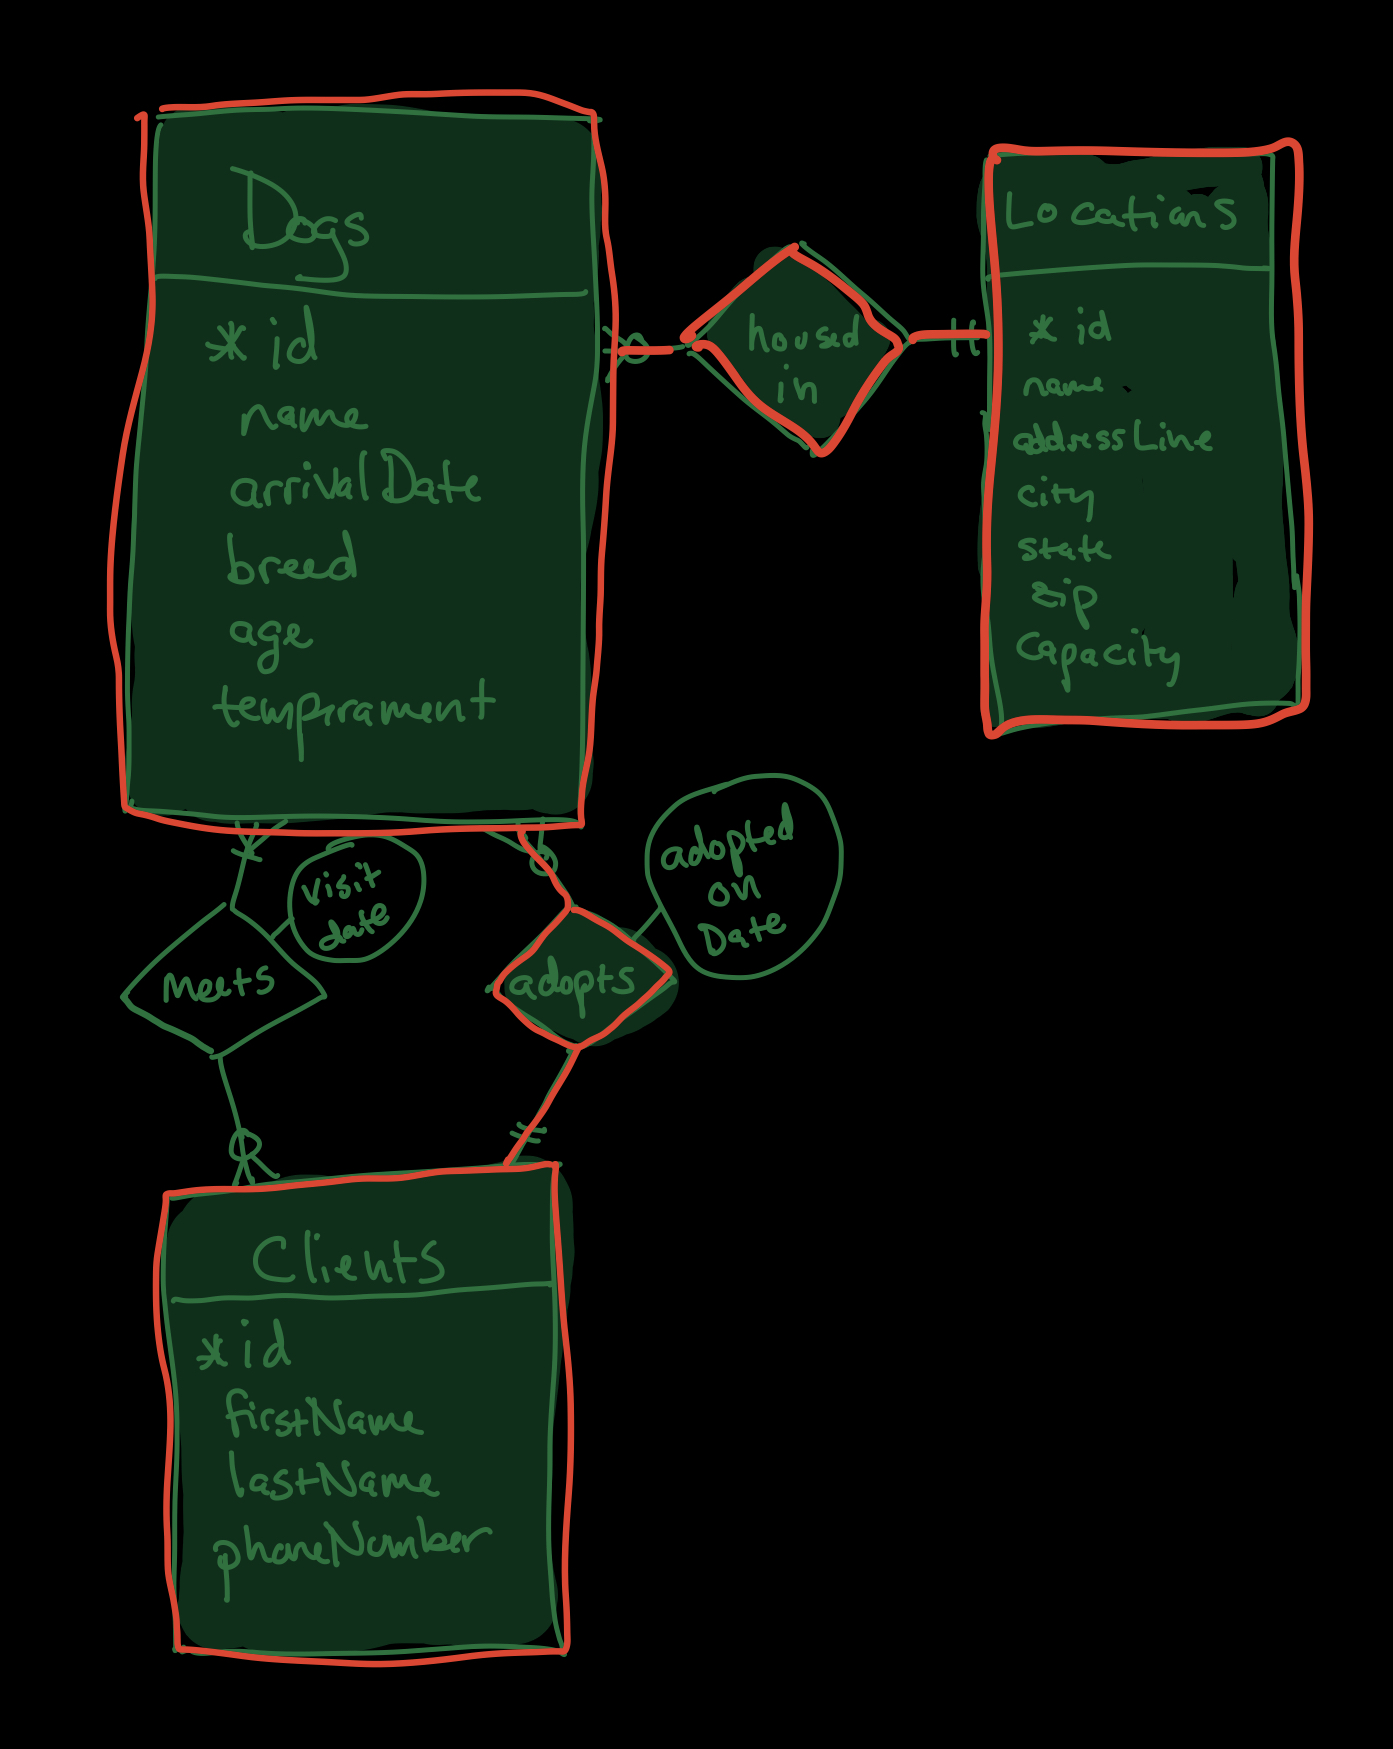 Dogs
* id
name
arrivalDate
breed
age
temprament
housed
in
Locations
* id
name
addressLine
city
state
zip
capacity
visit
date
Meets
adopted
on
Date
adopts
Clients
* id
firstName
lastName
phoneNumber